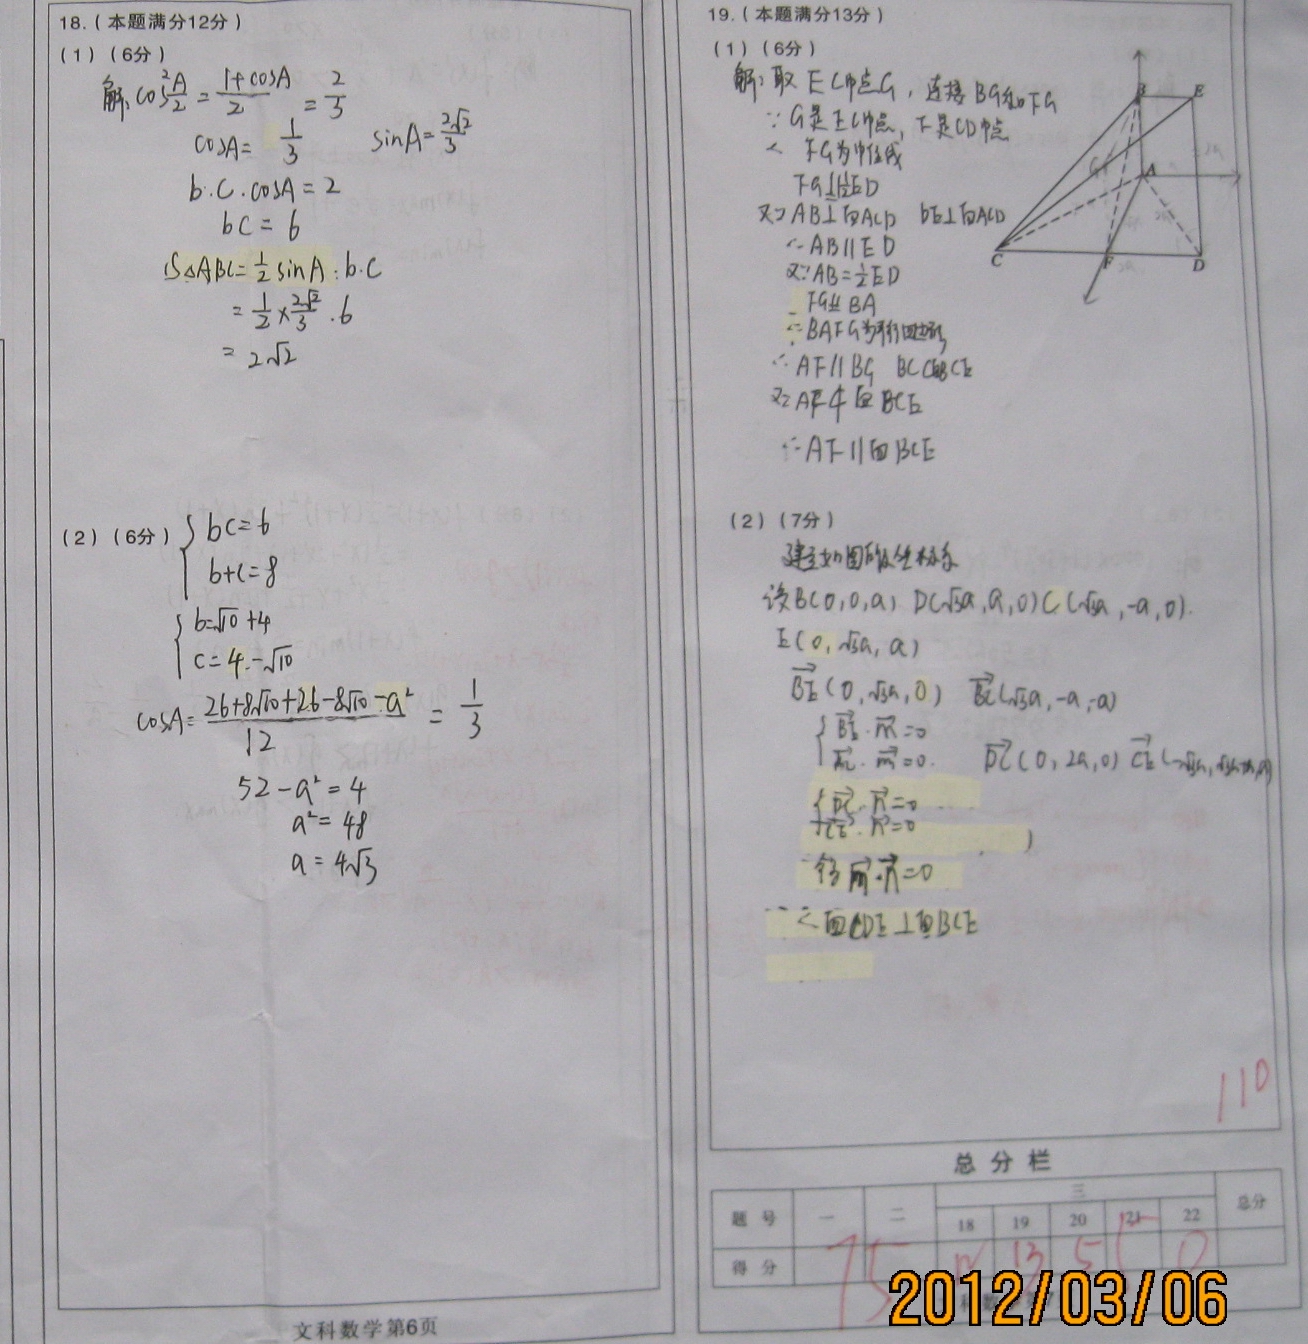 18.(本题满分12分)
(1)(6分)
解: cos²A/2 = (1+cosA)/2 = 2/3
cosA = 1/3 sinA = 2√2/3
b·c·cosA = 2
bc = 6
S△ABC = 1/2 sinA·b·c
= 1/2 × 2√2/3 · 6
= 2√2
(2)(6分) { bc = 6
b+c = 8
{ b = √10 + 4
c = 4 - √10
cosA = (26+8√10+26-8√10-a²)/12 = 1/3
52 - a² = 4
a² = 48
a = 4√3
文科数学第6页
19.(本题满分13分)
(1)(6分)
解: 取EC中点G, 连接BG和FG
∵ G是EC中点, F是CD中点
∴ FG为中位线
FG∥1/2ED
又∵AB⊥面ACD DE⊥面ACD
∴AB∥ED
又∵AB=1/2ED
FG∥BA
∴BAFG为平行四边形
∴AF∥BG BC⊂面BCE
又∵AF⊄面BCE
∴AF∥面BCE
B E G A C F D
(2)(7分)
建立如图所示坐标系
设B(0,0,a) D(√3a,a,0) C(√3a,-a,0).
E(0,√3a,a)
BE(0,√3a,0) BC(√3a,-a,-a)
{ BE·m=0
BC·m=0. DC(0,2a,0) CE
{ DC·n=0
CE·n=0
得m·n=0
∴面CDE⊥面BCE
110
总分栏
题号 一 二 三 总分
18 19 20 21 22
得分 75 12 13 5 5 0
2012/03/06